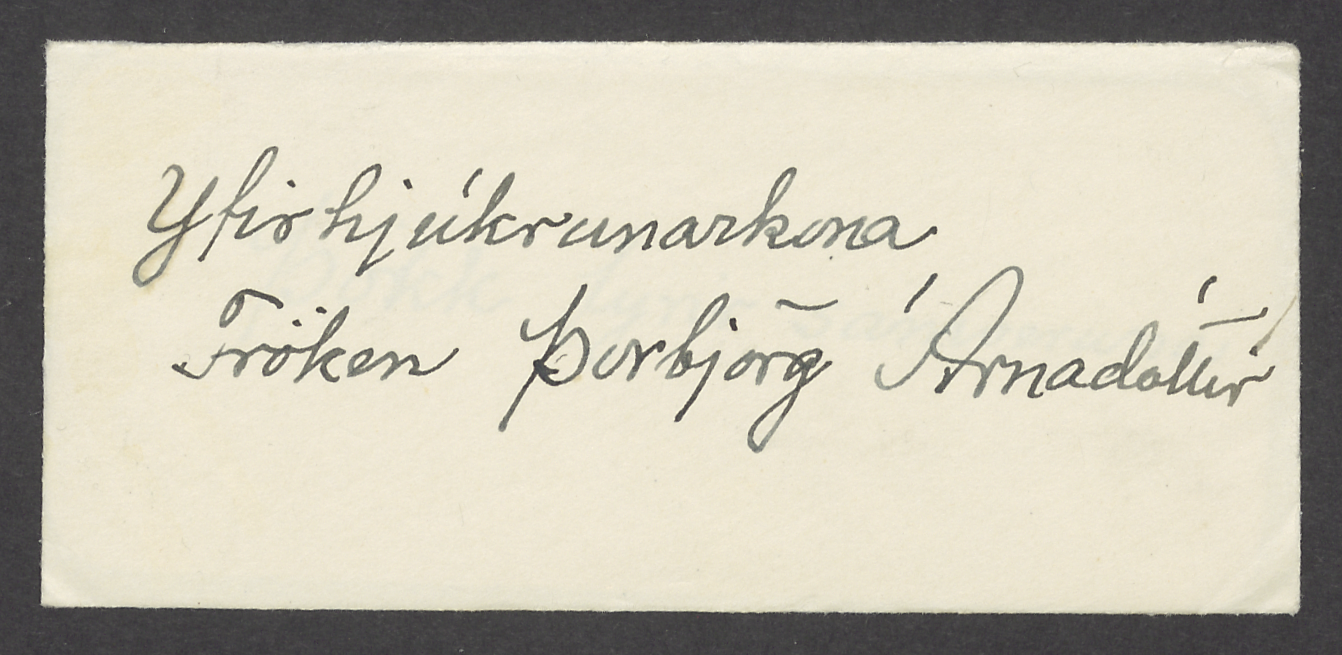 Yfirhjúkrunarkona
Fröken Þorbjörg Árnadóttir